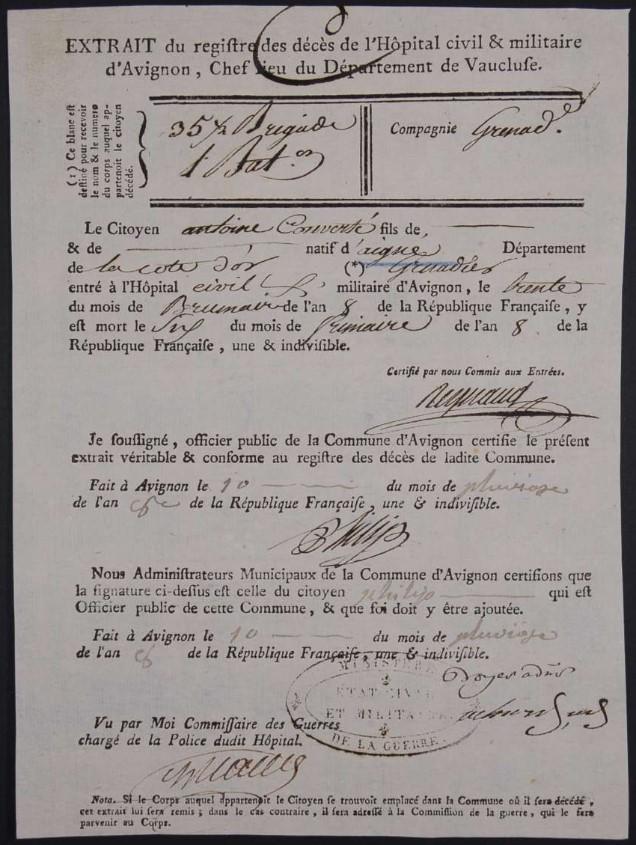 EXTRAIT du regiſtre des décès de l'Hôpital civil & militaire
d'Avignon, Chef lieu du Département de Vaucluſe.
(1) Ce blanc eſt
deſtiné pour recevoir
le nom & le numero
du corps auquel ap-
partenoit le citoyen
décédé.
35 ½ Brigade
1 Bat.on
Compagnie Grenad.e
Le Citoyen antoine Converté fils de
& de natif d'aigne Département
de la cote d'or (*) Grenadier
entré à l'Hôpital civil & militaire d'Avignon, le trente
du mois de Brumaire de l'an 8 de la République Françaiſe, y
eſt mort le Six du mois de frimaire de l'an 8 de la
République Françaiſe, une & indiviſible.
Certifié par nous Commis aux Entrées.
Reynaud
Je ſouſſigné, officier public de la Commune d'Avignon certifie le préſent
extrait véritable & conforme au regiſtre des décès de ladite Commune.
Fait à Avignon le 10 du mois de pluviose
de l'an 8e de la République Françaiſe, une & indiviſible.
Philip
Nous Adminiſtrateurs Municipaux de la Commune d'Avignon certifions que
la ſignature ci-deſſus eſt celle du citoyen philip qui eſt
Officier public de cette Commune, & que foi doit y être ajoutée.
Fait à Avignon le 10 du mois de pluviose
de l'an 8 de la République Françaiſe, une & indiviſible.
MINISTERE
ETAT CIVIL
ET MILITAIRE
DE LA GUERRE
Vu par Moi Commiſſaire des Guerres
chargé de la Police dudit Hôpital.
Nota. Si le Corps auquel appartenoit le Citoyen ſe trouvoit emplacé dans la Commune où il ſera décédé,
cet extrait lui ſera remis; dans le cas contraire, il ſera adreſſé à la Commiſſion de la guerre, qui le fera
parvenir au Corps.